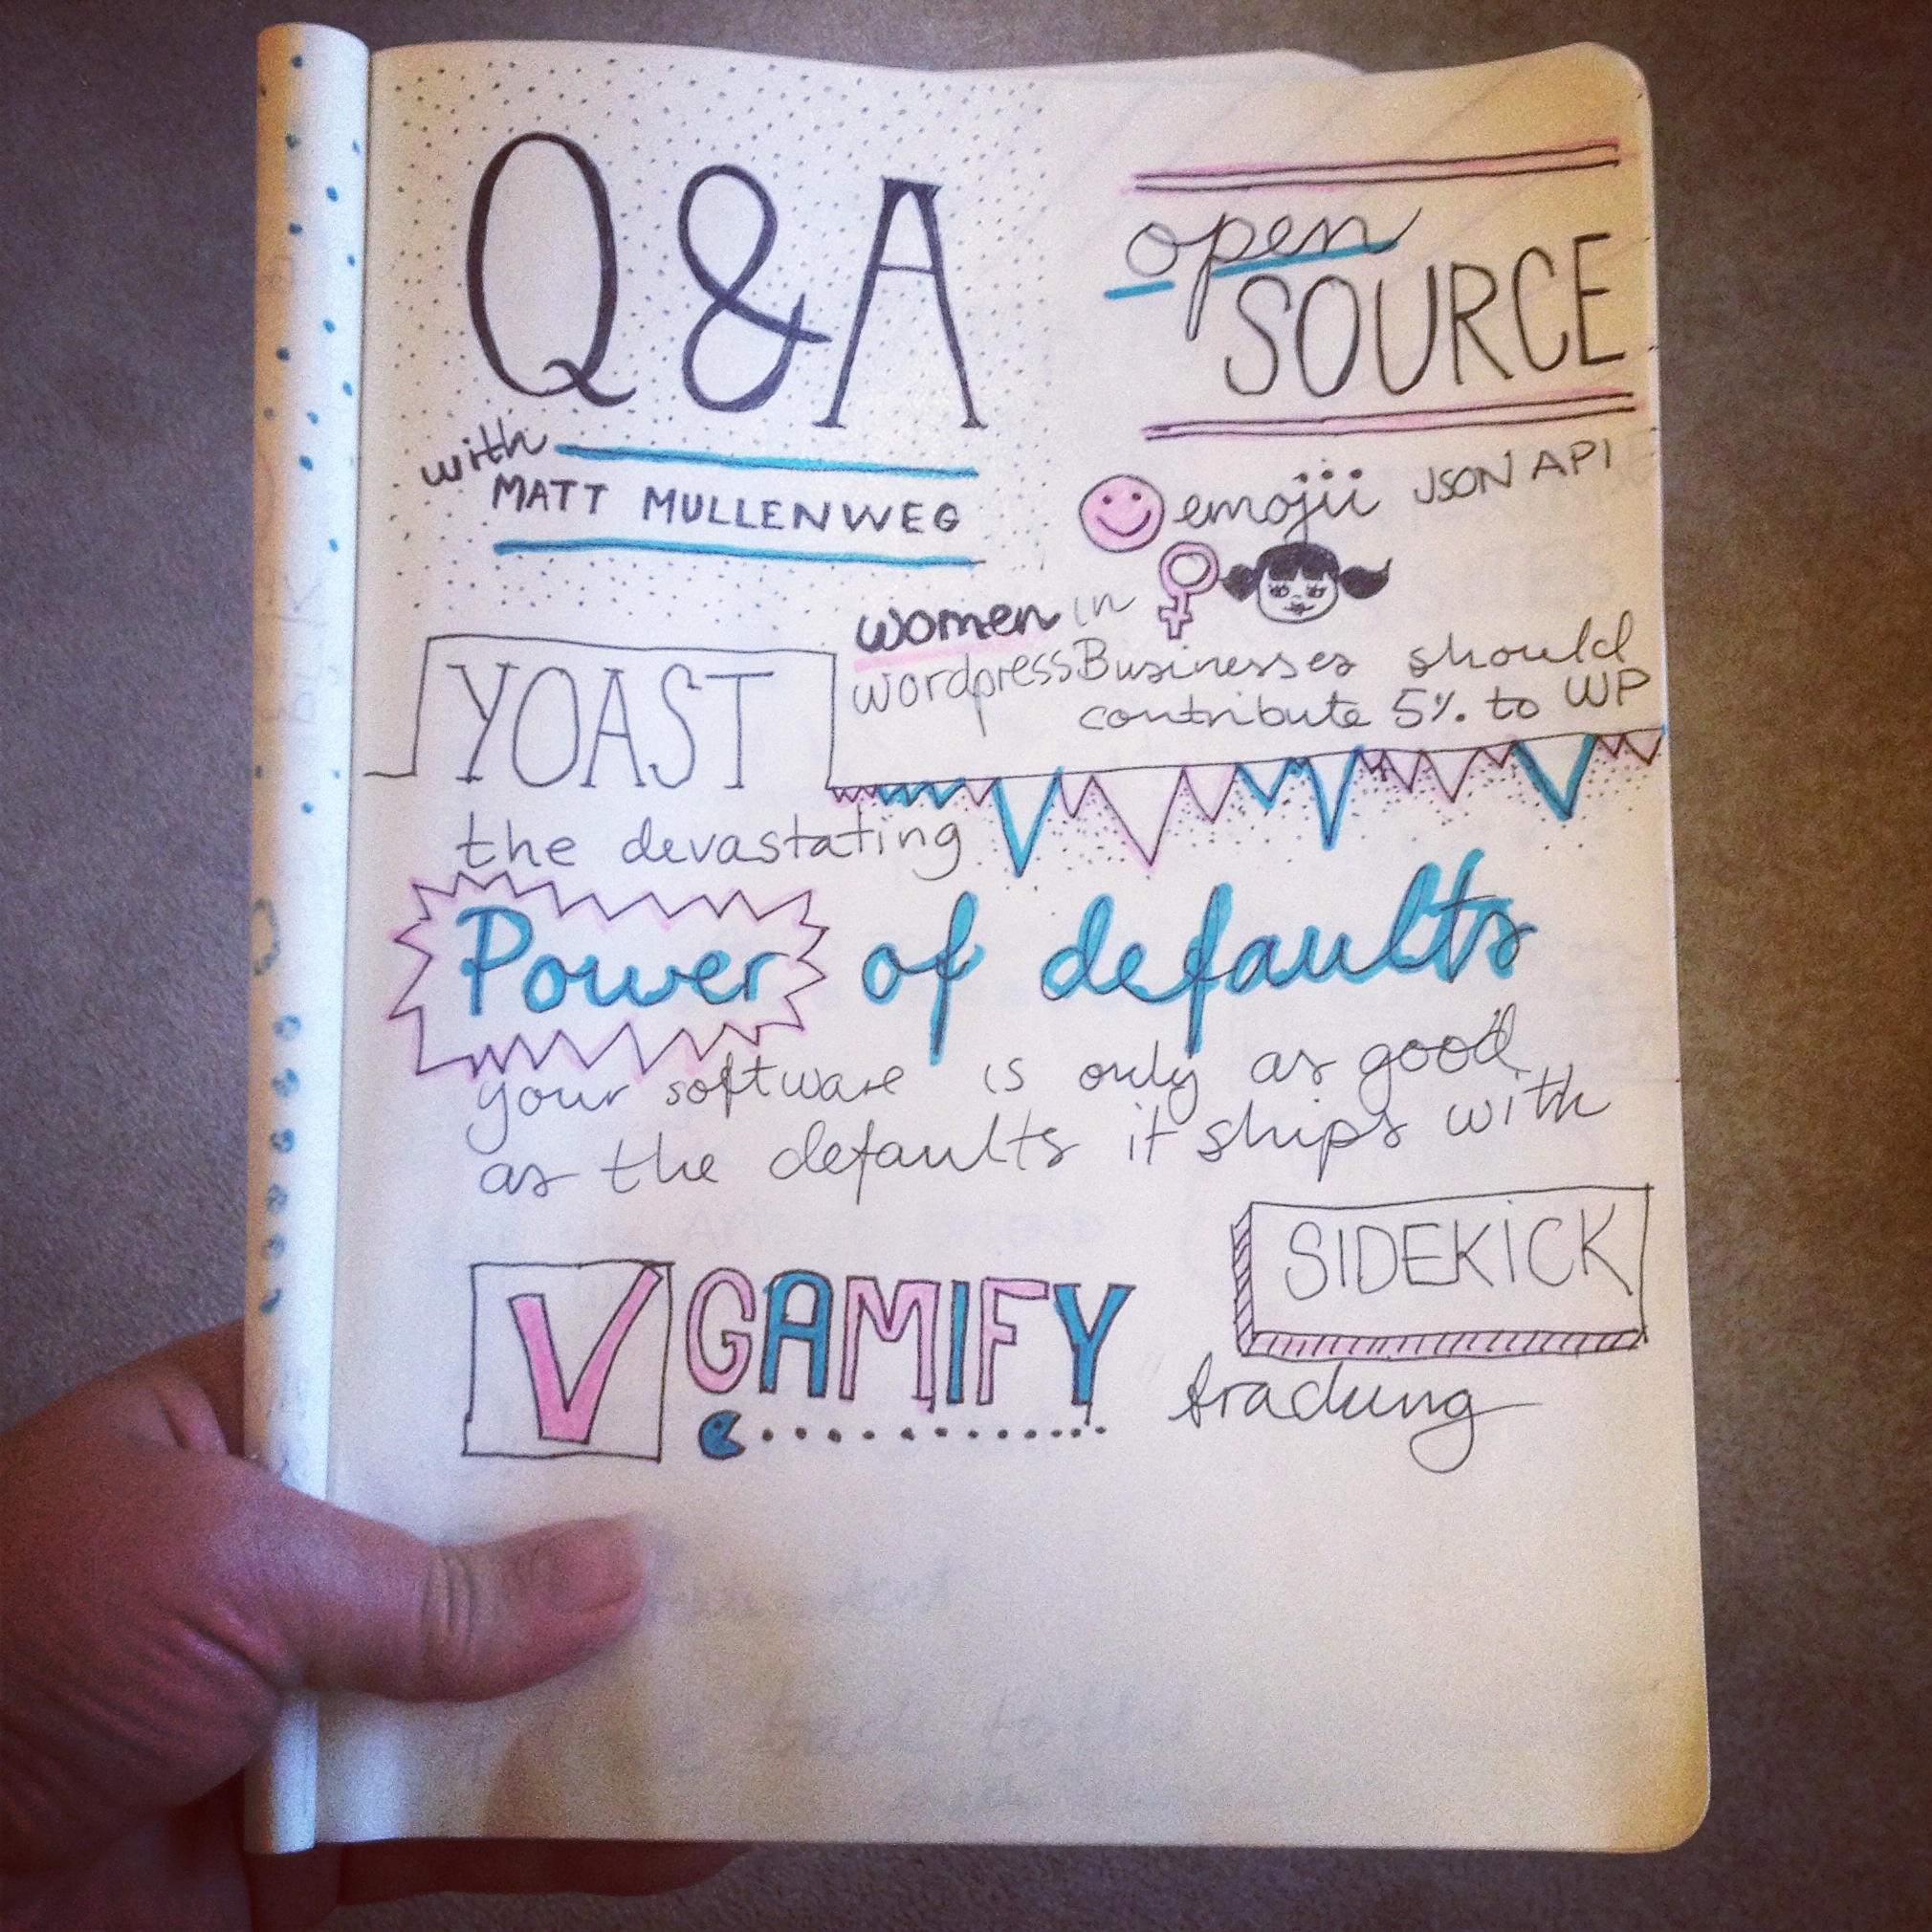 Q & A
with
MATT MULLENWEG
open
SOURCE
emojii JSON API
women in
wordpress
Businesses should
contribute 5% to WP
YOAST
the devastating
Power of defaults
your software is only as good
as the defaults it ships with
V GAMIFY
SIDEKICK
tracking